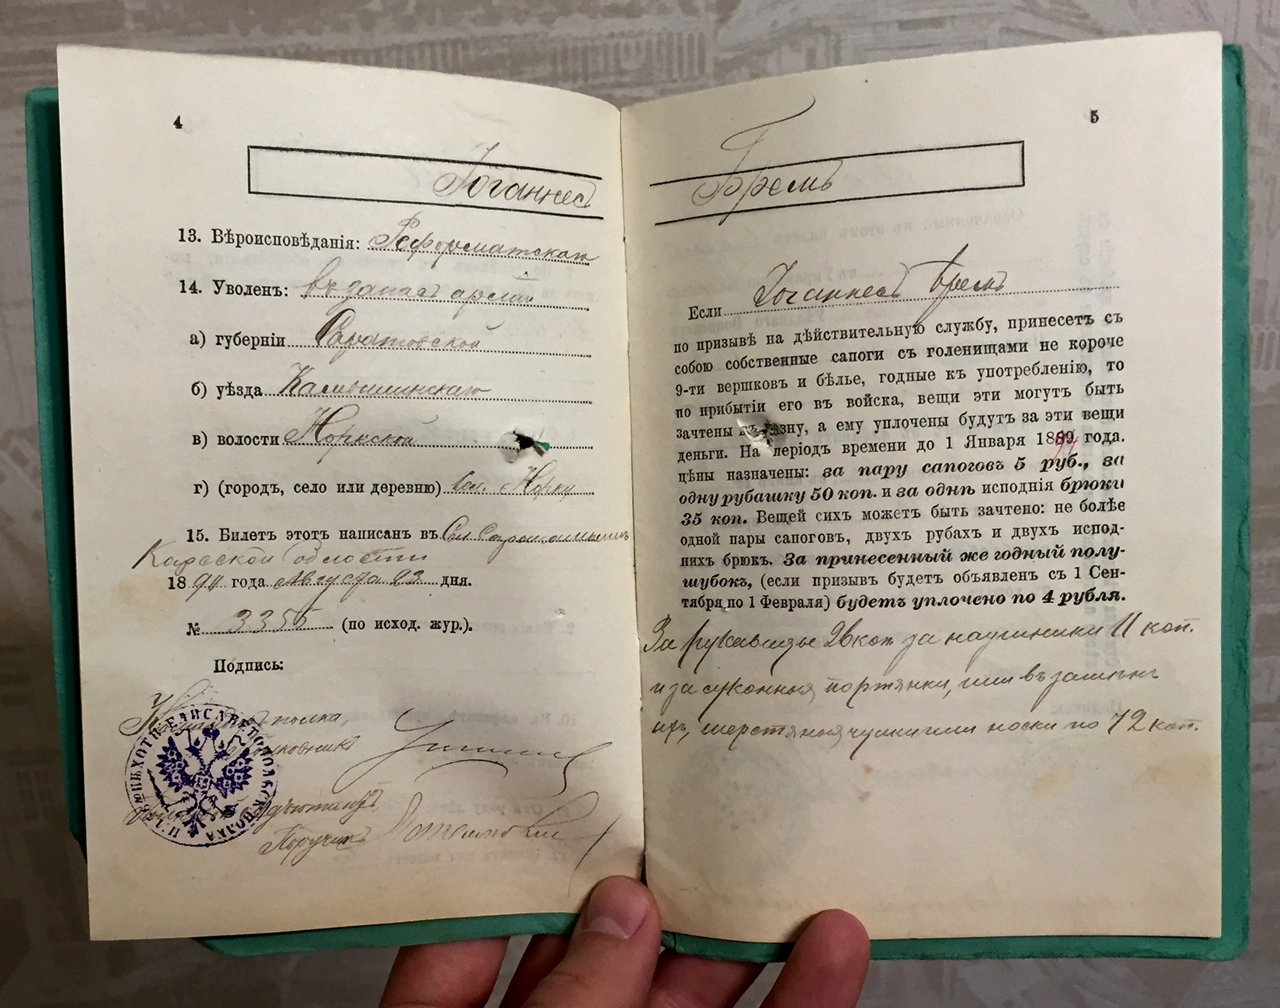 4
Іоганнесъ
13. Вѣроисповѣданія: Реформатскаго
14. Уволенъ: въ запасъ арміи
а) губерніи Саратовской
б) уѣзда Камышинскаго
в) волости Норкской
г) (городъ, село или деревню) сел. Норку
15. Билетъ этотъ написанъ въ
Карсской области
1894 года Августа 23 дня.
№ 3355 (по исход. жур.).
Подпись:
полка,
Полковникъ
Адъютантъ,
Поручикъ
ПѢХОТН. ЕЛИСАВЕТПОЛЬСК. ПОЛКА
5
Бремъ
Если Іоганнесъ Бремъ
по призывѣ на дѣйствительную службу, принесетъ съ
собою собственные сапоги съ голенищами не короче
9-ти вершковъ и бѣлье, годные къ употребленію, то
по прибытіи его въ войска, вещи эти могутъ быть
зачтены въ казну, а ему уплочены будутъ за эти вещи
деньги. На періодъ времени до 1 Января 1889 года.
цѣны назначены: за пару сапоговъ 5 руб., за
одну рубашку 50 коп. и за однѣ исподнія брюки
35 коп. Вещей сихъ можетъ быть зачтено: не болѣе
одной пары сапоговъ, двухъ рубахъ и двухъ испод-
нихъ брюкъ. За принесенный же годный полу-
шубокъ, (если призывъ будетъ объявленъ съ 1 Сен-
тября по 1 Февраля) будетъ уплочено по 4 рубля.
За рукавицы 26 коп. за наушники 11 коп.
и за суконныя портянки, или взамѣнъ
ихъ, шерстяныя чулки или носки по 72 коп.